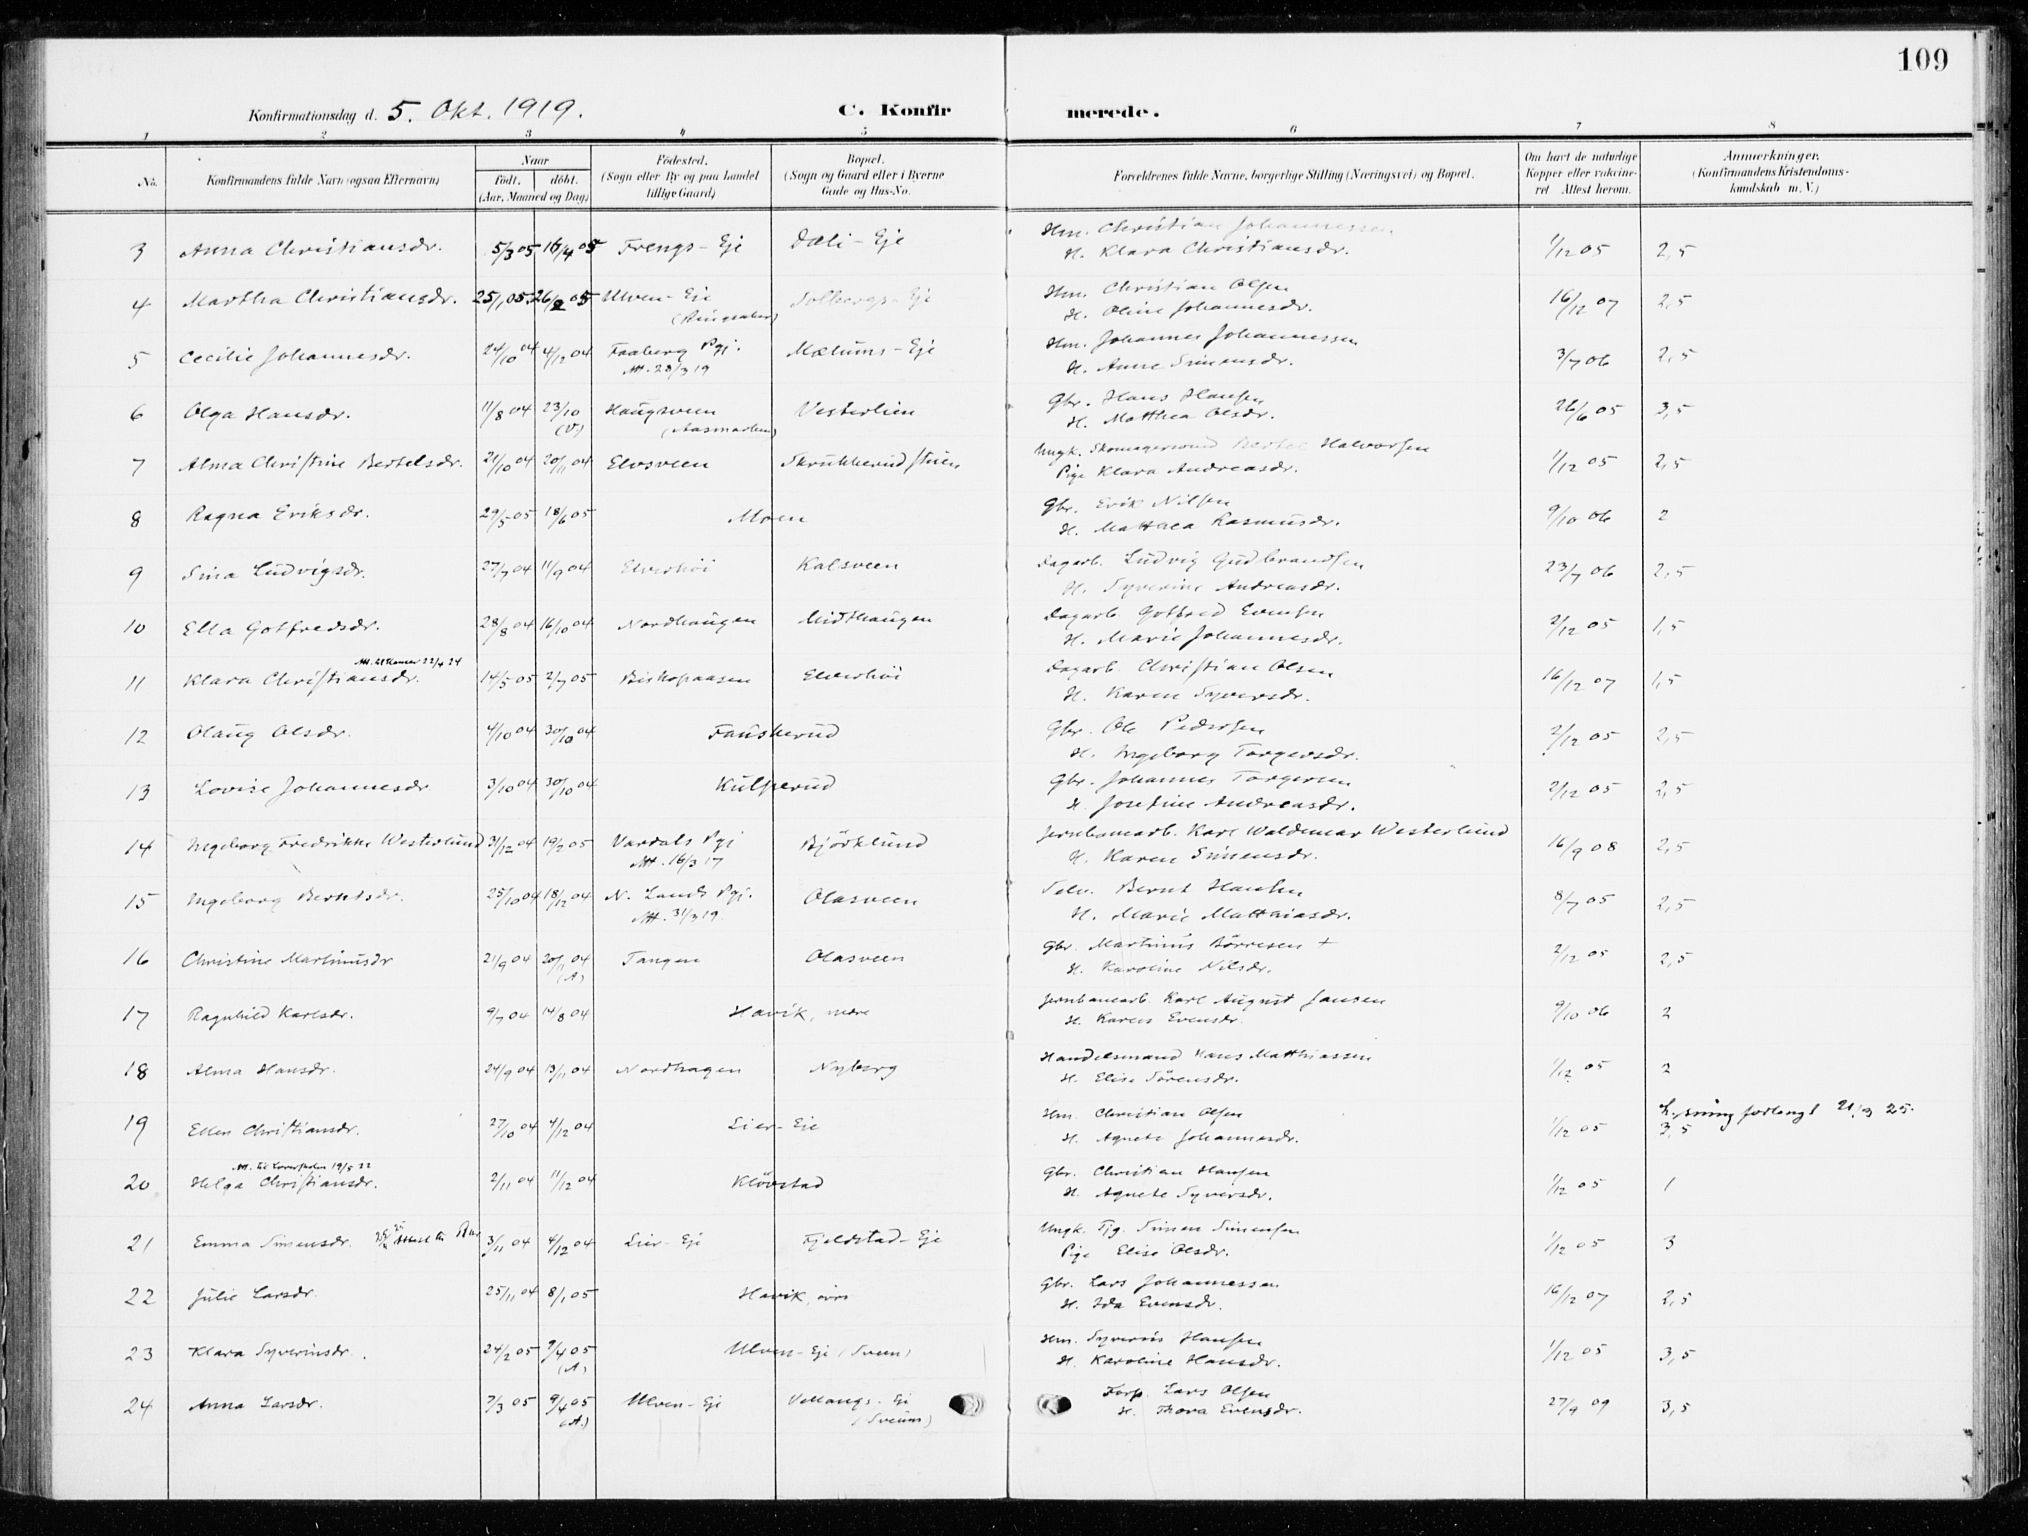 109
Konfirmationsdag d. 5. Okt. 1919. C. Konfirmerede.
1 2 3 4 5 6 7 8
No. Konfirmandens fulde Navn (ogsaa Efternavn) Naar født. døbt. (Aar, Maaned og Dag) Fødested. (Sogn eller By og paa Landet tillige Gaard) Bopæl. (Sogn og Gaard eller i Byerne Gade og Hus-No. Forældrenes fulde Navne, borgerlige Stilling (Næringsvei) og Bopæl. Om havt de naturlige Kopper eller vakcineret. Attest herom. Anmerkninger. (Konfirmandens Kristendomskundskab m. V.)
3 Anna Christiansdr. 5/3 05 16/4 05 Frengs-Eje Dæli-Eje Hm. Christian Johannessen
H. Klara Christiansdr. 1/12 05 2,5
4 Martha Christiansdr. 25/1 05 26/2 05 Ulven-Eje (Ringsaker) Solbergs-Eje Hm. Christian Olsen
H. Oline Johannesdr. 16/12 07 2,5
5 Cecilie Johannesdr. 24/10 04 4/12 04 Faaberg Pgj. Att. 28/3 19 Mælums-Eje Hm. Johannes Johannessen
H. Anne Simensdr. 3/7 06 2,5
6 Olga Hansdr. 11/8 04 23/10 (V.) Haugsveen (Aasmarken) Vesterlien Gbr. Hans Hansen
H. Mathea Olsdr. 26/6 05 3,5
7 Alma Christine Bertelsdr. 21/10 04 20/11 04 Elvsveen Skrukkerudstuen Ungk. Skomagersvend Bertel Halvorsen
Pige Klara Andreasdr. 1/12 05 2,5
8 Ragna Eriksdr. 29/5 05 18/6 05 Moen Gbr. Erik Nilsen
H. Mathea Rasmusdr. 9/10 06 2
9 Sina Ludvigsdr. 27/7 04 11/9 04 Elverhöi Kalsveen Dagarb. Ludvig Gudbrandsen
H. Syverine Andreasdr. 23/7 06 2,5
10 Ella Gotfredsdr. 28/8 04 16/10 04 Nordhaugen Midthaugen Dagarb. Gotfred Evensen
H. Marie Johannesdr. 2/12 05 1,5
11 Klara Christiansdr. 14/5 05 2/7 05 Biskopaasen Elverhöi Dagarb. Christian Olsen
H. Karen Syversdr. 16/12 07 1,5
12 Olaug Olsdr. 4/10 04 30/10 04 Fauskerud Gbr. Ole Pedersen
H. Ingeborg Torgersdr. 2/12 05 2,5
13 Lovise Johannesdr. 3/10 04 30/10 04 Kulperud Gbr. Johannes Torgersen
H. Josefine Andreasdr. 2/12 05 2,5
14 Ingeborg Fredrikke Westerlund 31/12 04 19/2 05 Vardals Pgj. Att. 16/3 17 Björklund Jernbanearb. Karl Waldemar Westerlund
H. Karen Simensdr. 16/9 08 2,5
15 Ingeborg Berntsdr. 25/10 04 18/12 04 N. Lands Pgj. Att. 31/3 19 Olasveen Selv. Bernt Hansen
H. Marie Matthiasdr. 8/7 05 2,5
16 Christine Martinusdr 21/9 04 20/11 04 (A) Tangen Olasveen Gbr. Martinus Börresen +
H. Karoline Nilsdr. 2/12 05 2,5
17 Ragnhild Karlsdr. 9/7 04 14/8 04 Havik, nedre Jernbanearb. Karl August Jansen
H. Karen Evensdr. 9/10 06 2
18 Alma Hansdr. 24/9 04 13/11 04 Nordhagen Nyberg Handelsmand Hans Matthiassen
H. Elise Sörensdr. 1/12 05 2
19 Ellen Christiansdr. 27/10 04 4/12 04 Lier-Eje Hm. Christian Olsen
H. Agnete Johannesdr. 1/12 05 3,5 Lysning forlangt 21/3 25.
20 Helga Christiansdr. 2/11 04 11/12 04 Klövstad Gbr. Christian Hansen
H. Agnete Syversdr. 1/12 05 1
21 Emma Simensdr. 3/11 04 4/12 04 Lier-Eje Fjeldstad-Eje Ungk. Tjg. Simen Simensen
Pige Elise Olsdr. 1/12 05 3
22 Julie Larsdr. 25/11 04 8/1 05 Havik, övre Gbr. Lars Johannessen
H. Ida Evensdr. 16/12 07 2,5
23 Klara Syverinsdr. 24/2 05 9/4 05 (A) Ulven-Eje (Sveen) Hm. Syverin Hansen
H. Karoline Hansdr. 1/12 05 3,5
24 Anna Larsdr. 7/3 05 9/4 05 (A.) Ulven-Eje Vollangs-Eje (Sveum) Forp. Lars Olsen
H. Thora Evensdr. 27/9 09 3,5